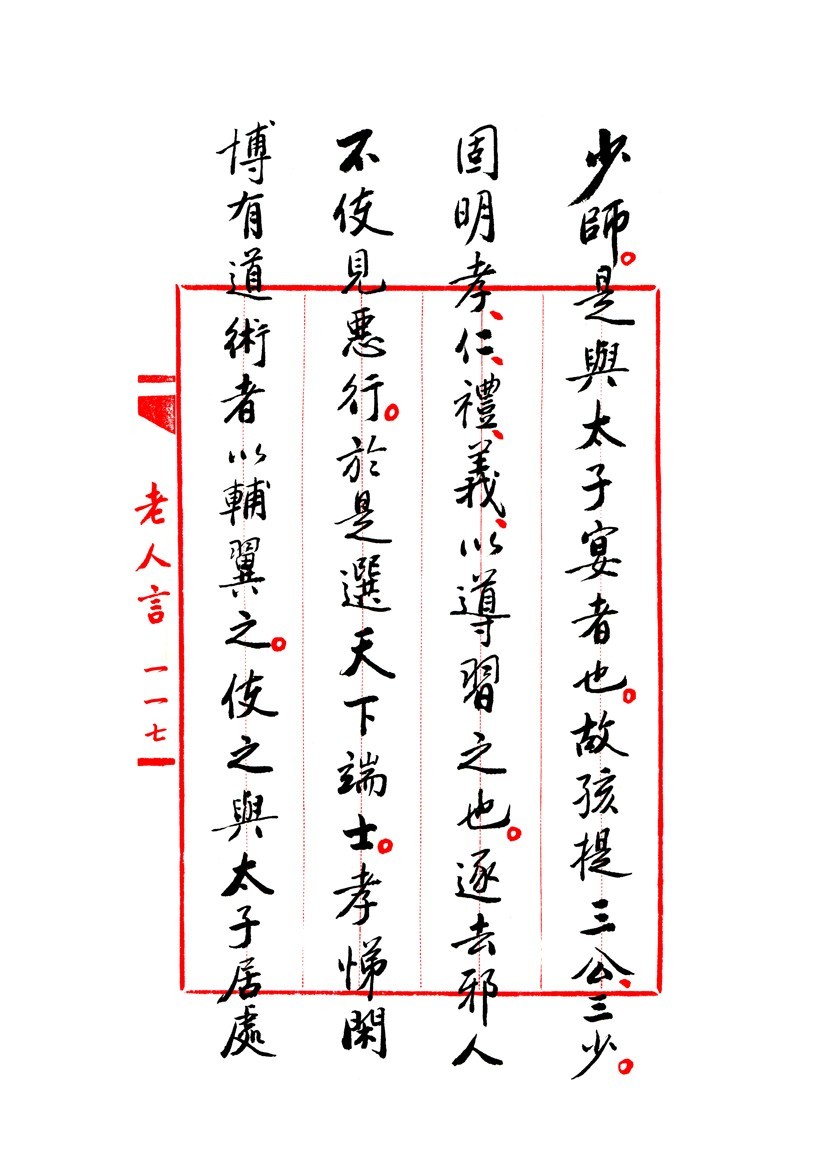 少師。是與太子宴者也。故孩提三公、三少。
固明孝、仁、禮、義、以導習之也。逐去邪人
不使見惡行。於是選天下端士。孝悌閑
博有道術者以輔翼之。使之與太子居處
老人言 一一七